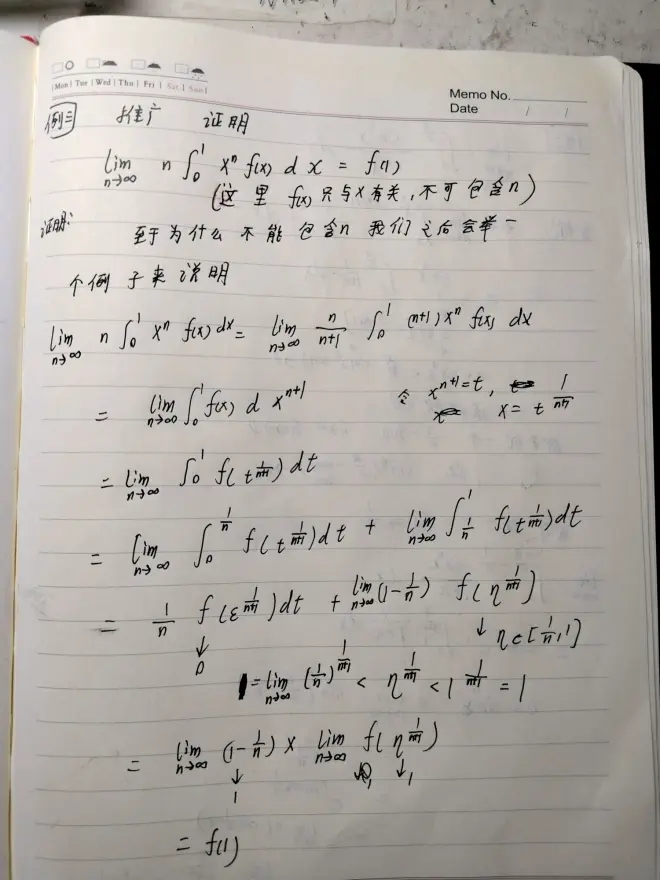 Mon Tue Wed Thu Fri Sat Sun
Memo No.
Date / /
例三 推广 证明
lim_{n→∞} n ∫_0^1 x^n f(x) dx = f(1)
(这里 f(x) 只与x有关,不可包含n)
证明: 至于为什么不能包含n 我们之后会举一
个例子来说明
lim_{n→∞} n ∫_0^1 x^n f(x) dx = lim_{n→∞} n/(n+1) ∫_0^1 (n+1) x^n f(x) dx
= lim_{n→∞} ∫_0^1 f(x) d x^{n+1} 令 x^{n+1} = t, x = t^{1/(n+1)}
= lim_{n→∞} ∫_0^1 f(t^{1/(n+1)}) dt
= lim_{n→∞} ∫_0^{1/n} f(t^{1/(n+1)}) dt + lim_{n→∞} ∫_{1/n}^1 f(t^{1/(n+1)}) dt
= 1/n f(ε^{1/(n+1)}) dt + lim_{n→∞} (1 - 1/n) f(η^{1/(n+1)})
↓ ↓ η∈[1/n, 1]
0
1 = lim_{n→∞} (1/n)^{1/(n+1)} < η^{1/(n+1)} < 1^{1/(n+1)} = 1
= lim_{n→∞} (1 - 1/n) × lim_{n→∞} f(η^{1/(n+1)})
↓ ↓
1 1
= f(1)